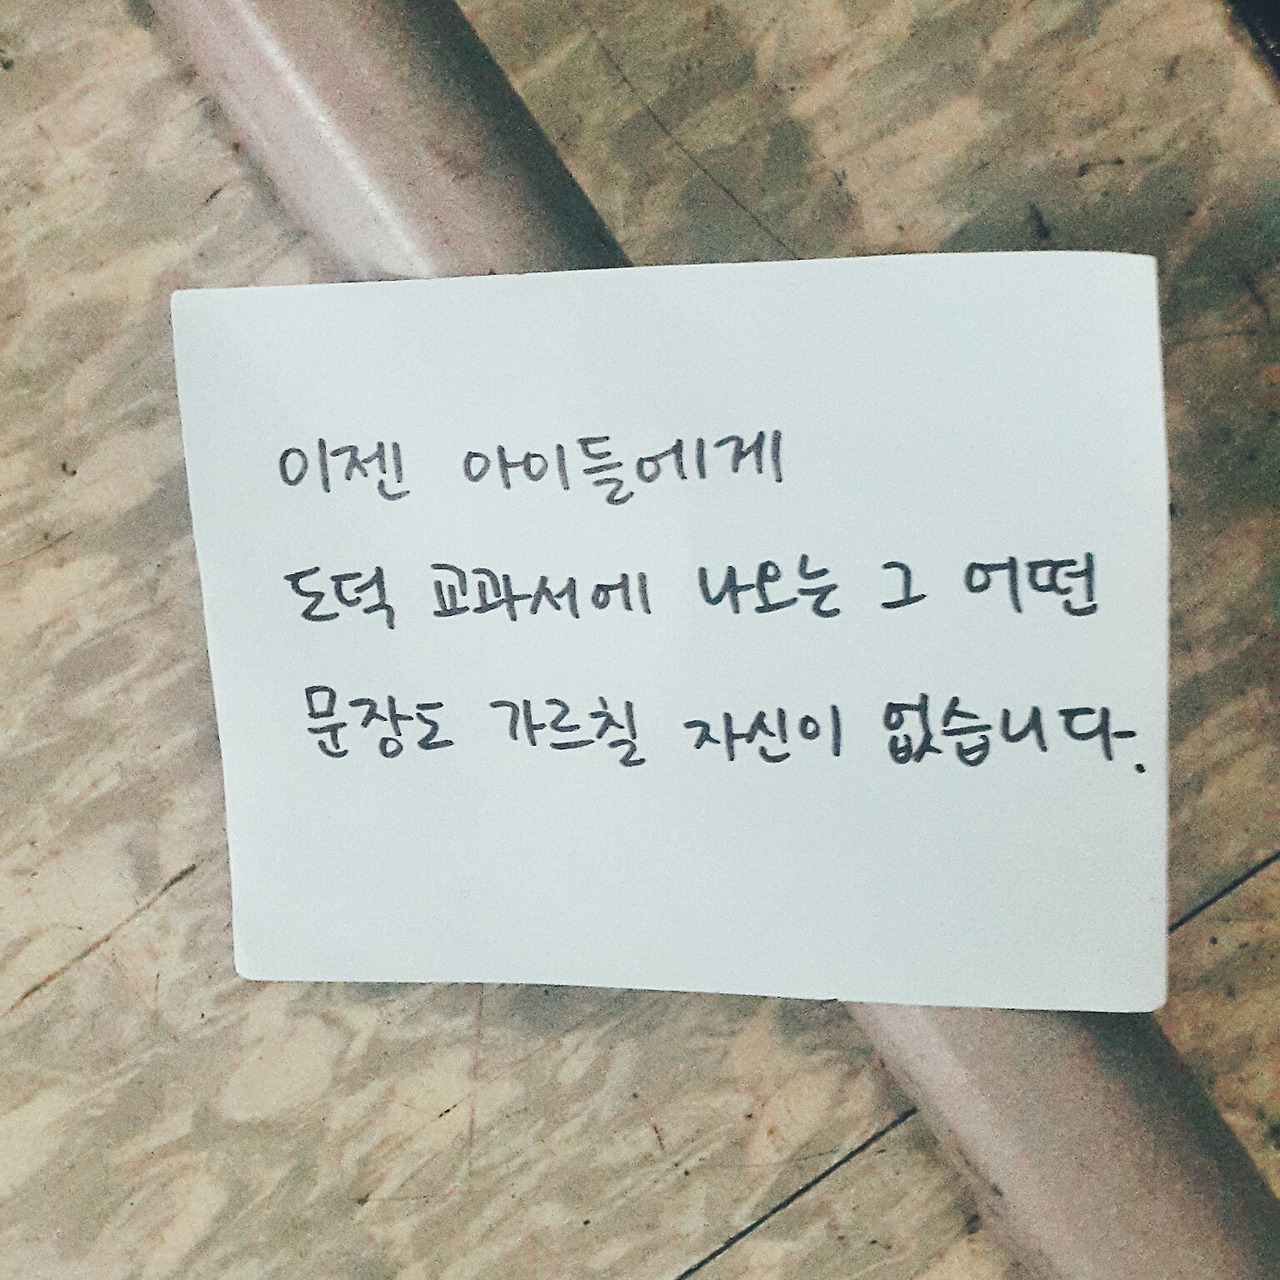 이젠 아이들에게
도덕 교과서에 나오는 그 어떤
문장도 가르칠 자신이 없습니다.